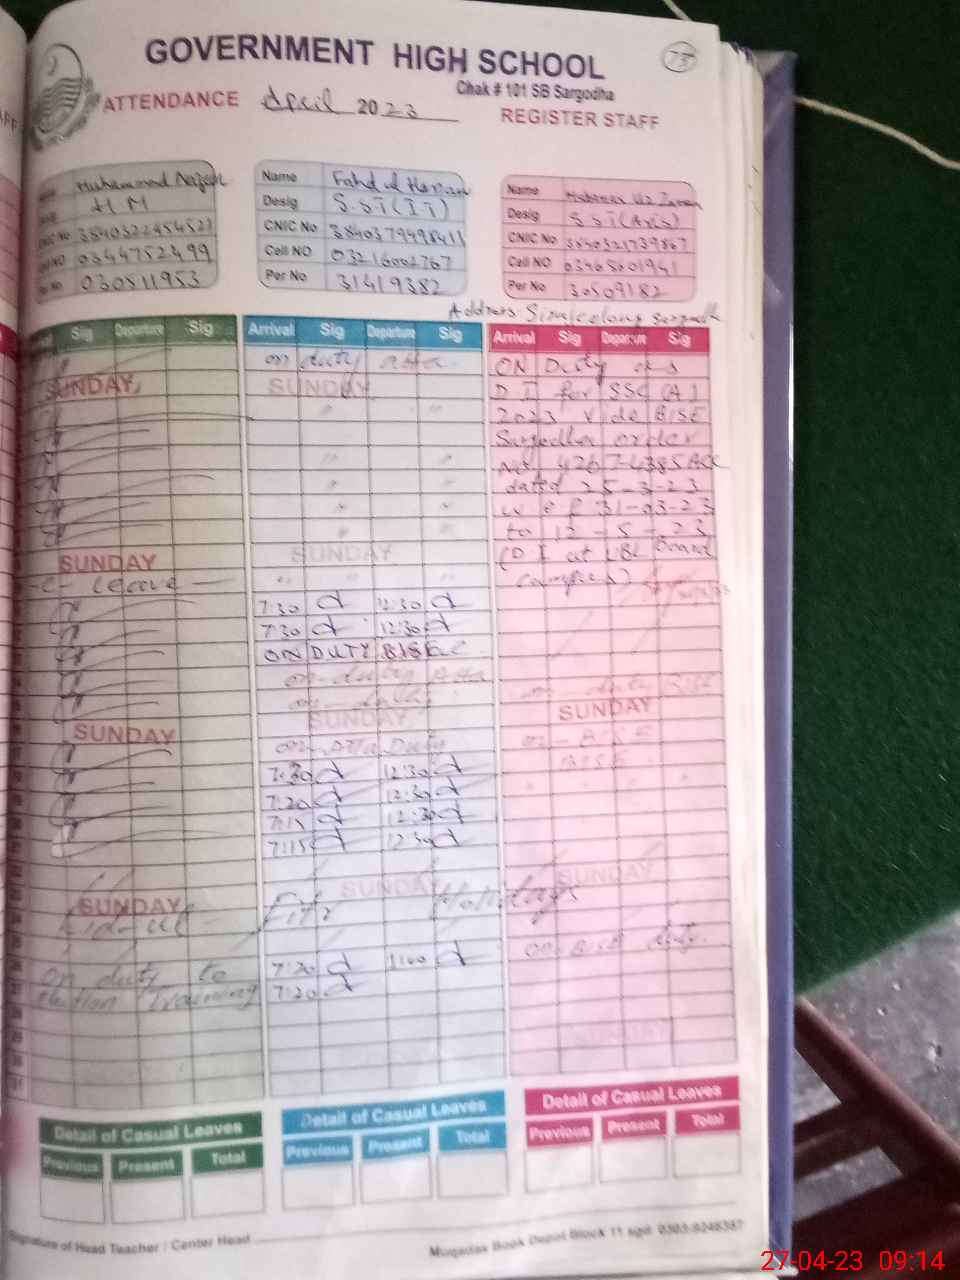 GOVERNMENT HIGH SCHOOL
73
Chak # 101 SB Sargodha
ATTENDANCE April 2023 REGISTER STAFF
Muhammad
HM
CNIC No 3840322454521
0344752499
030511953
Name Fahd ul Hassan
Desig S.ST(I.T)
CNIC No 3840379498411
Cell NO 03216002767
Per No 31419382
Name Uz Zaman
Desig S ST(Arts)
CNIC No 3840321739867
Cell NO 03465601941
Per No 30509182
Address:
Sig Departure Sig
Arrival Sig Departure Sig
Arrival Sig Departure Sig
SUNDAY
SUNDAY
leave
SUNDAY
SUNDAY
Eid-ul- Fitr Holidays
on duty to
Training
on duty
SUNDAY
SUNDAY
7:30 12:30
7:30 12:30
ON DUTY BISE
on duty
on duty
SUNDAY
on Duty
7:30 12:30
7:20 12:30
7:15 12:30
7:15 12:30
SUNDAY
7:20 1:00
7:20
ON Duty as
D I for SSC (A)
2023 vide BISE
Sargodha order
No. 4267-4385 Acc
dated 25-3-23
w e f 31-03-23
to 12-5-23
(D I at UBL Board
Campus)
on duty BISE
SUNDAY
on - BISE
BISE
SUNDAY
on BISE duty.
SUNDAY
Detail of Casual Leaves
Previous Present Total
Detail of Casual Leaves
Previous Present Total
Detail of Casual Leaves
Previous Present Total
Signature of Head Teacher / Center Head
Muqadas Book Depot Block 11 sgd. 0303-6246387
27-04-23 09:14